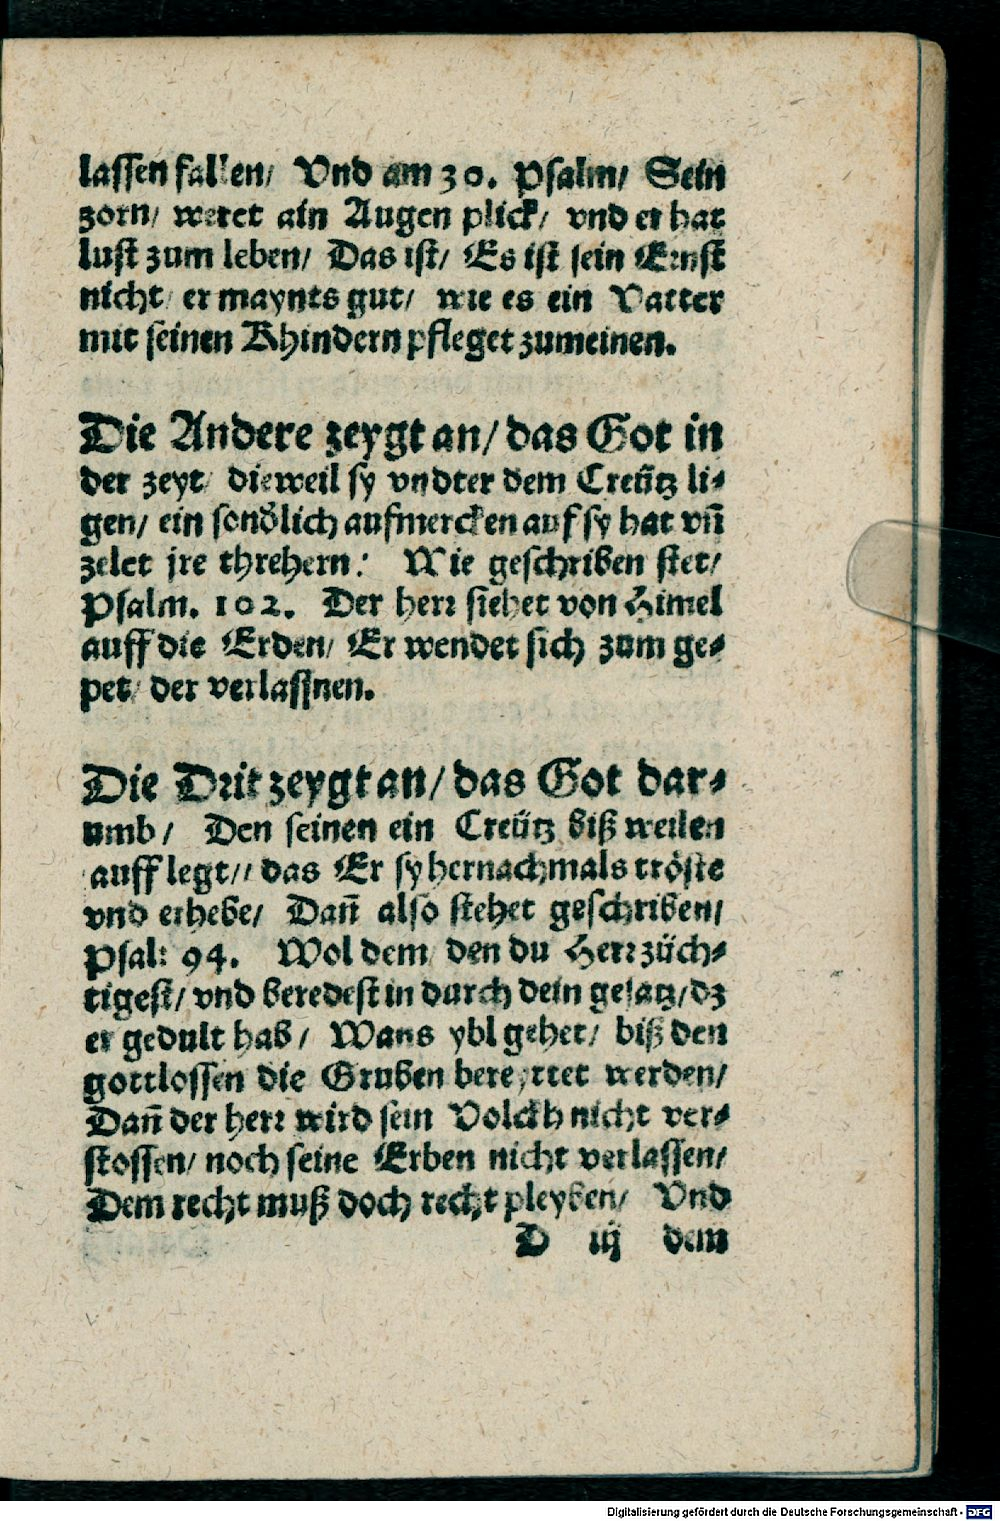 lassen fallen/ Vnd am 30. Psalm/ Sein
zorn/ weret ain Augen plick/ vnd er hat
lust zum leben/ Das ist/ Es ist sein Ernst
nicht/ er maynts gut/ wie es ein Vatter
mit seinen Khindern pfleget zumeinen.
Die Andere zeygt an/ das Got in
der zeyt/ dieweil sy vndter dem Creütz li⸗
gen/ ein sond̕lich aufmercken auf sy hat vn̄
zelet jre threhern: Wie geschriben stet/
Psalm. 102. Der herr siehet von Himel
auff die Erden/ Er wendet sich zum ge⸗
pet/ der verlassnen.
Die Drit zeygt an/ das Got dar⸗
umb/ Den seinen ein Creütz biß weilen
auff legt// das Er sy hernachmals tröste
vnd erhebe/ Dan̄ also stehet geschriben/
Psal: 94. Wol dem/ den du Herr züch⸗
tigest/ vnd beredest in durch dein gesatz/ dz
er gedult hab/ Wans ybl gehet/ biß den
gottlossen die Gruben bereyttet werden/
Dan̄ der herr wird sein Volckh nicht ver⸗
stossen/ noch seine Erben nicht verlassen/
Dem recht muß doch recht pleyben/ Vnd
D iij dem
Digitalisierung gefördert durch die Deutsche Forschungsgemeinschaft - DFG